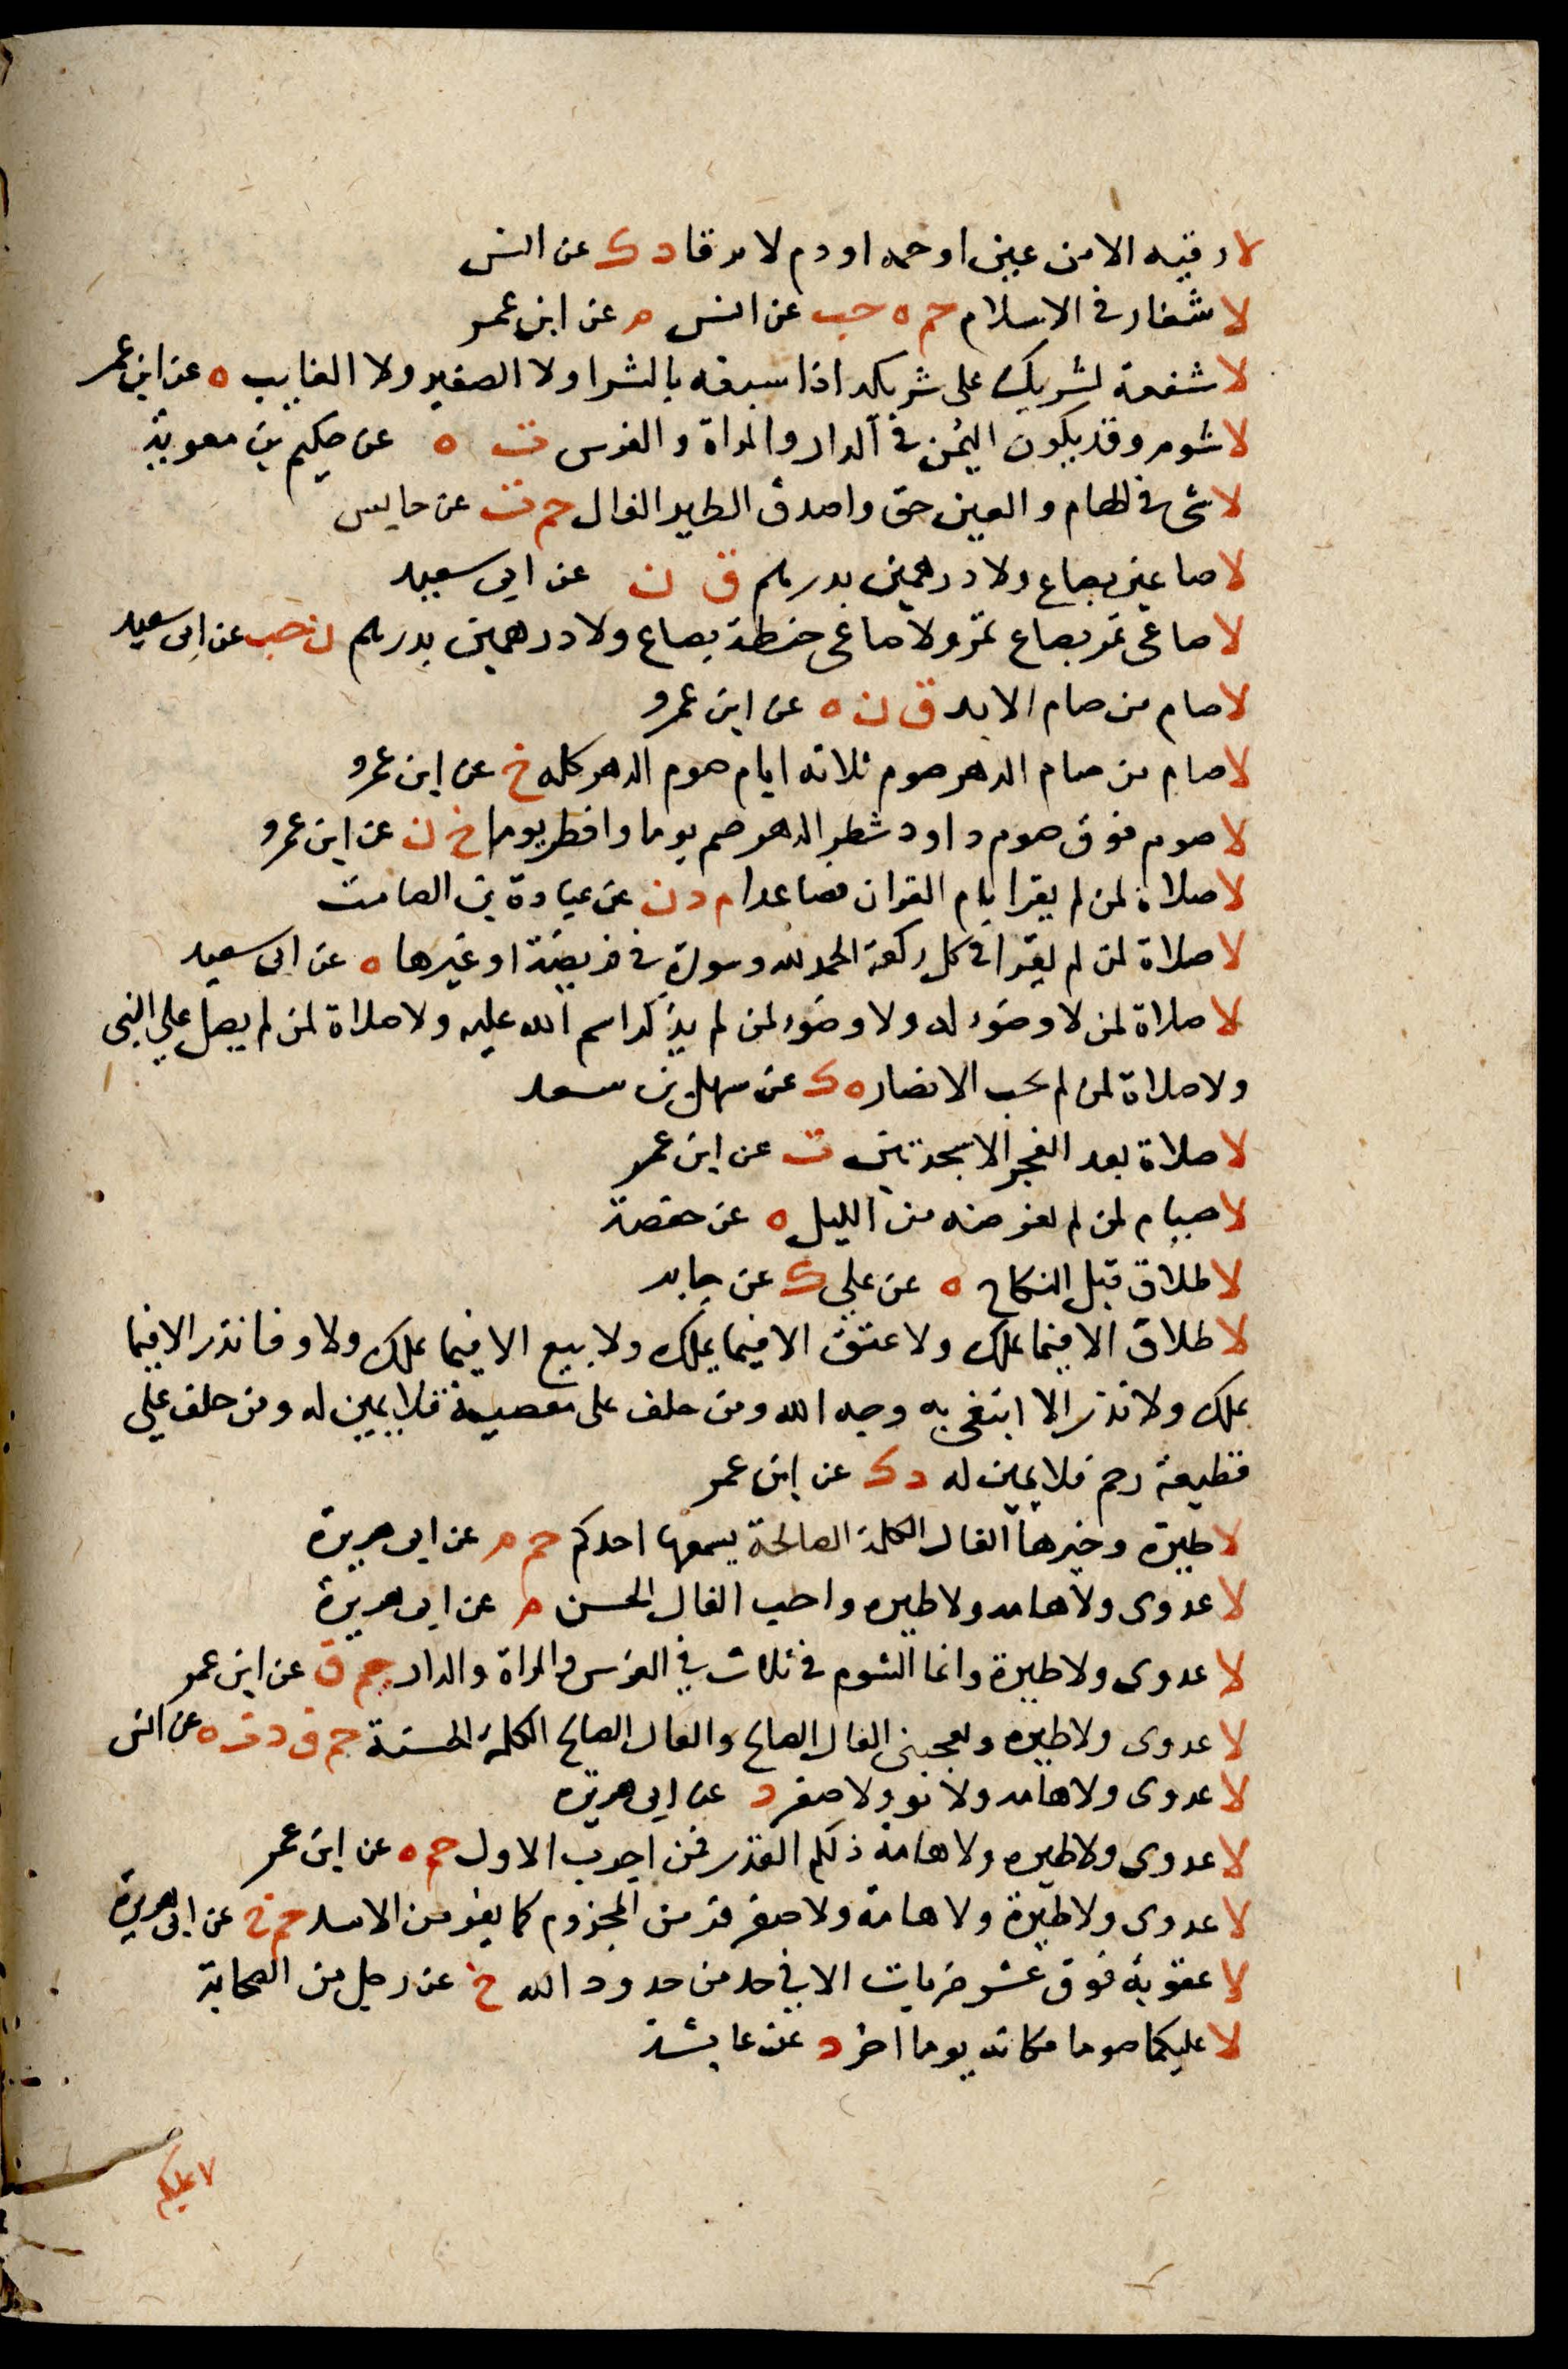 لا رقيه الا من عين او حمه او دم لا يرقا د ك عن انس
لا شغار في الاسلام حم ه حب عن انس م عن ابن عمر
لا شفعة لشريك على شريكه اذا سبقه بالشرا ولا الصغير ولا الغايب ه عن ابن عمر
لا شوم وقد يكون اليمن في الدار والمراة والفرس ت ه عن حكيم بن معوية
لا شى في الهام والعين حق واصدق الطير الفال حم ت عن حابس
لا صاعين بصاع ولا درهمين بدرهم ق ن عن ابي سعيد
لا صاعى تمر بصاع تمر ولا صاعى حنطة بصاع ولا درهمين بدرهم ن حب عن ابى سعيد
لا صام من صام الابد ق ن ه عن ابن عمرو
لا صام من صام الدهر صوم ثلاثه ايام صوم الدهر كله خ عن ابن عمرو
لا صوم فوق صوم داود شطر الدهر صم يوما وافطر يوما خ ن عن ابن عمرو
لا صلاة لمن لم يقرا بام القران فصاعدا م د ن عن عبادة بن الصامت
لا صلاة لمن لم يقرا في كل ركعة الحمد لله وسورة في فريضة او غيرها ه عن ابى سعيد
لا صلاة لمن لا وضوء له ولا وضوء لمن لم يذكر اسم الله عليه ولا صلاة لمن لم يصل علي النبى
ولا صلاة لمن لم يحب الانصار ه ك عن سهل بن سعد
لا صلاة بعد الفجر الا سجدتين ت عن ابن عمر
لا صيام لمن لم يفرضه من الليل ه عن حفصة
لا طلاق قبل النكاح ه عن علي ك عن جابر
لا طلاق الا فيما يملك ولا عتق الا فيما يملك ولا بيع الا فيما يملك ولا وفا نذر الا فيما
يملك ولا نذر الا ابتغى به وجه الله ومن حلف على معصية فلا يمين له ومن حلف علي
قطيعة رحم فلا يمين له د ك عن ابن عمر
لا طيرة وخيرها الفال الكلمة الصالحة يسمعها احدكم حم م عن ابى هريرة
لا عدوى ولا هامه ولا طيره واحب الفال الحسن م عن ابى هريرة
لا عدوى ولا طيرة وانما الشوم في ثلاث في الفرس والمراة والدار حم ق عن ابن عمر
لا عدوى ولا طيره ويعجبنى الفال الصالح والفال الصالح الكلمة الحسنة حم ق د ت ه عن انس
لا عدوى ولا هامه ولا نو ولا صفر د عن ابى هريره
لا عدوى ولا طيره ولا هامة ذلكم القدر فمن اجرب الاول حم ه عن ابن عمر
لا عدوى ولا طيرة ولا هامة ولا صفر فر من المجذوم كما يفر من الاسد حم خ عن ابى هريرة
لا عقوبة فوق عشر ضربات الا في حد من حدود الله خ عن رجل من الصحابة
لا عليكما صوما مكانه يوما اخر د عن عايشة
لا عليكم